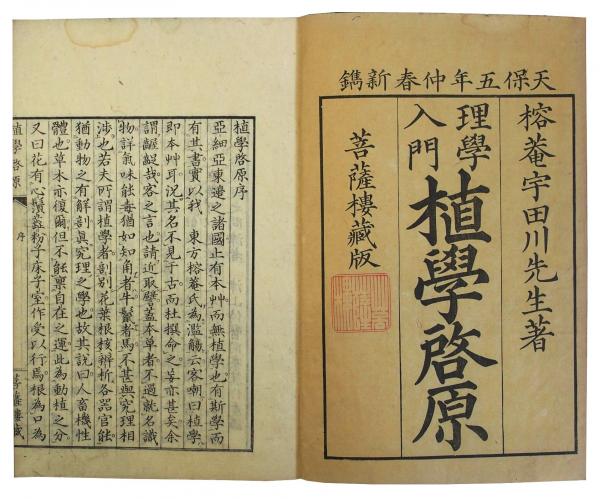 天保五年仲春新鐫
榕菴宇田川先生著
理學
入門
植學啓原
菩薩樓藏版
植學啓原序
亞細亞東邊之諸國止有本艸而無植學也有斯學而
有其書實以我　東方榕菴氏為濫觴云客嘲曰植學
即本艸耳說其名不見于古而杜撰命之妄亦甚矣余
謂齷齪哉客之言也請近取譬蓋本草者不過就名識
物詳氣味能毒猶如知角者牛鬣者馬不甚與究理相
涉也若夫所謂植學者剖別花葉根核辨析各器官能
猶動物之有解剖眞究理之學也故其說曰人畜機性
體也草木亦復爾但不能禀自在之運此為動植之分
又曰花有心鬚蕊粉子床子室作受以行焉根為口為
植學啓原
序
菩薩樓藏